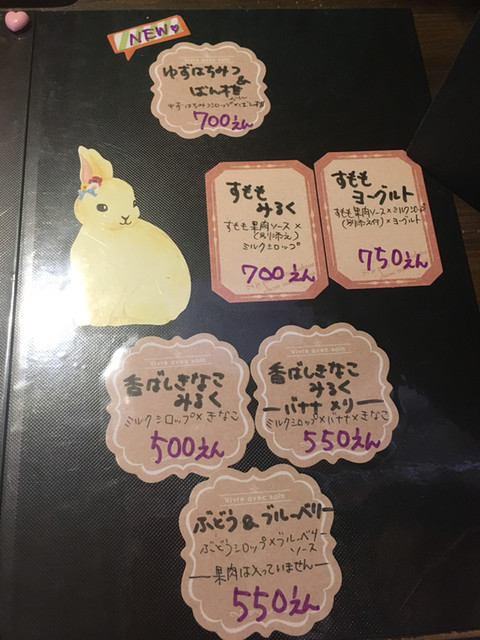 NEW
ゆずはちみつ
&
ばん柑
ゆずはちみつシロップ×ばん柑
700えん
すもも
みるく
すもも果肉ソース×
(別添え)
ミルクシロップ
700えん
すもも
ヨーグルト
すもも果肉ソース×ミルクシロップ
(別添え付)×ヨーグルト
750えん
vivre avec soin
香ばしきなこ
みるく
ミルクシロップ×きなこ
500えん
vivre avec soin
香ばしきなこ
みるく
ーバナナ メリー
ミルクシロップ×バナナ×きなこ
550えん
vivre avec soin
ぶどう&ブルーベリー
ぶどうシロップ×ブルーベリー
ソース
ー果肉は入っていませんー
550えん